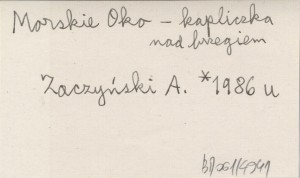 Morskie Oko – kapliczka
nad brzegiem
Zaczyński A. *1986 u